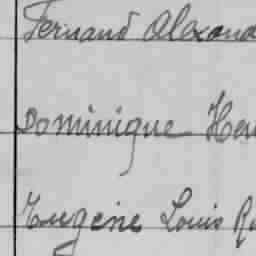 Fernand Alexand
Dominique Hen
Eugène Louis Ra